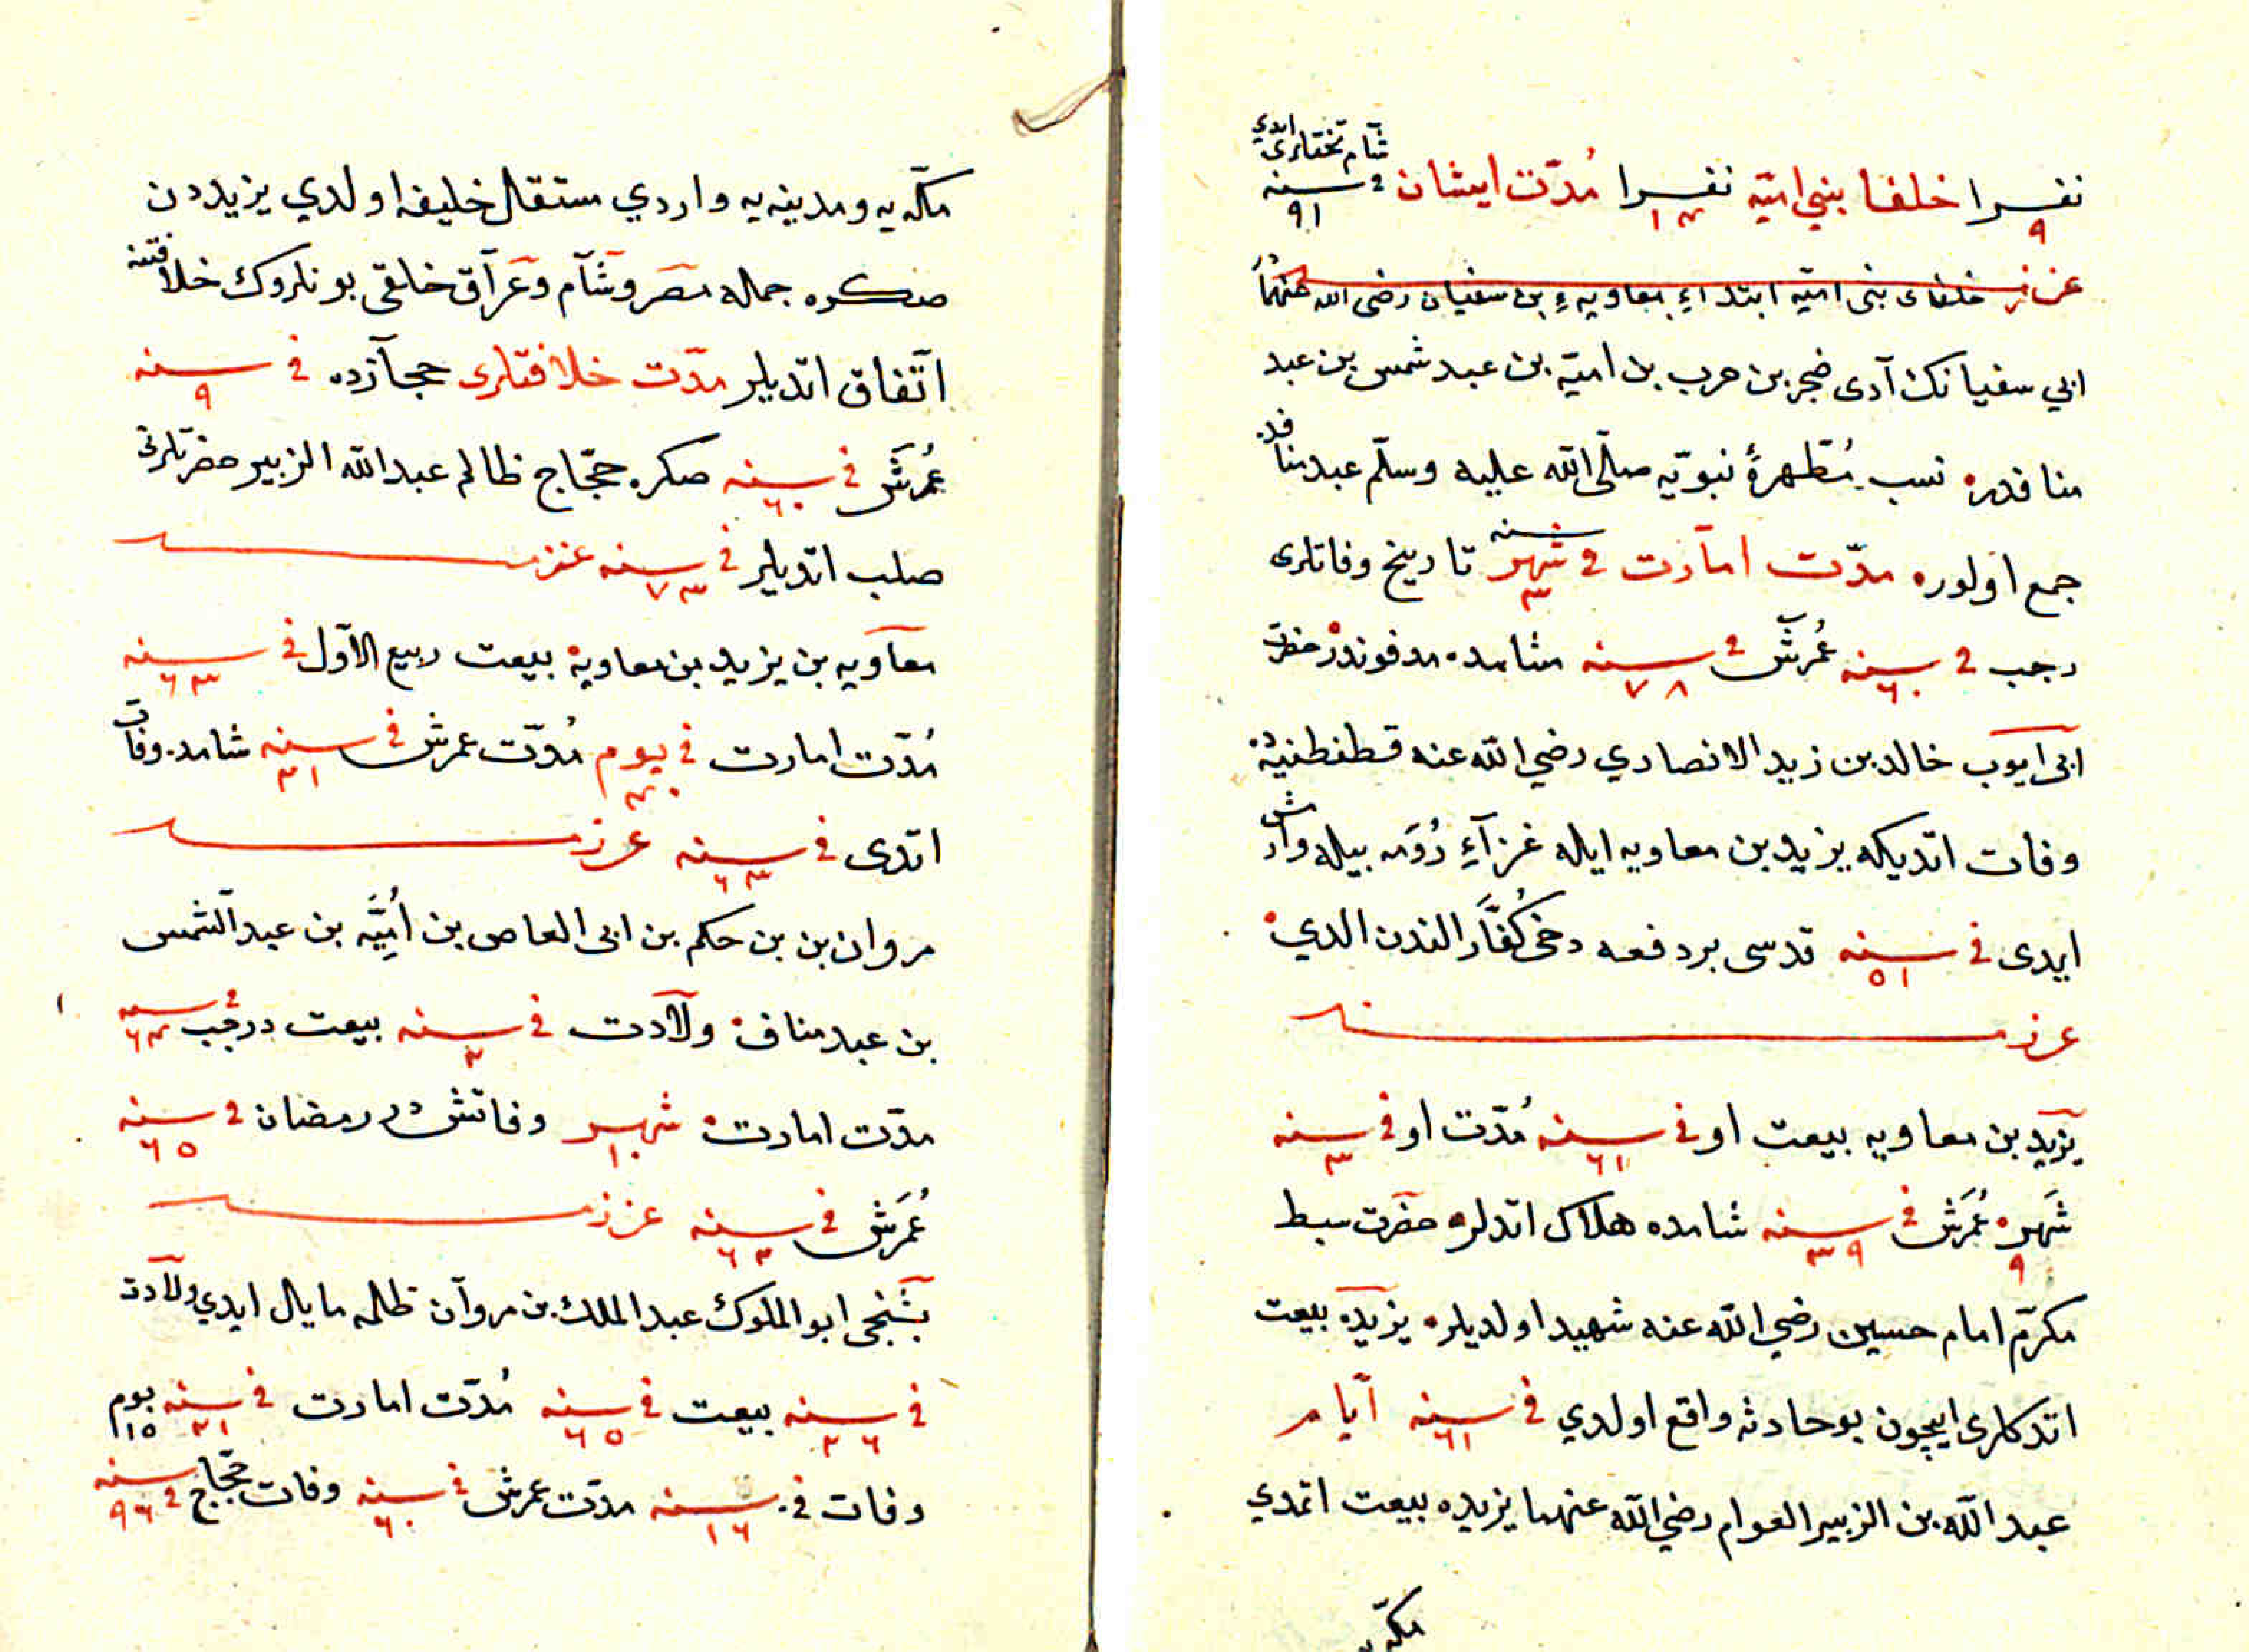 نفرا ٩ خلفا بني اميّه نفرا ١٤ مُدّت ايشان في سنه ٩١ شام تختلرى ايدي
عزنز خلفاى بنى اميّه ابتداءِ معاويهءِ بن سفيان رضى الله عنهُمَا
ابي سفيانك آدى ضجر بن حرب بن اميّه بن عبد شمس بن عبد
منا فدر نسب مُطّهرهٔ نبويّه صلّى الله عليه وسلّم عبد منافده
جمع اولور مدّت امآرت في سنه شهر ٣ تاريخ وفاتلرى
رجب في سنه ٦٠ عُمرش في سنه ٧٨ شامده مدفوندر حضرت
ابى ايّوب خالد بن زيد الانصاري رضي الله عنه قسطنطنيهده
وفات اتديكه يزيد بن معاويه ايله غزآءِ رُومَه بيله وارمش
ايدى في سنه ٥١ قدسى بر دفعه دخى كُفّار الندن الدي
عزنز
يزيد بن معاويه بيعت او في سنه ٦١ مُدّت او في سنه ٣
شَهر ٩ عُمرَش في سنه ٣٩ شامده هلاك اتدلر حضرت سبط
مكرّم امام حسين رضي الله عنه شهيد اولديلر يزيده بيعت
اتدكلرى ايچون بو حادثه واقع اولدي في سنه ٦١ ايّام
عبد الله بن الزبير العوام رضي الله عنهما يزيده بيعت اتمدي
مكّه يه
مكّه يه ومدينه يه واردي مستقل خليفه اولدي يزيددن
صكره جماله مصر وشآم وعرآق خلقى بونلروك خلافتنه
اتّفاق اتديلر مدّت خلافتلرى حجآزده في سنه ٩
عُمرَش في سنه ٦٠ صكره حجّاج ظالم عبد الله الزبير حضرتلرنى
صلب اتديلر في سنه ٧٣ عزنز
معآويه بن يزيد بن معاويه بيعت ربيع الآول في سنه ٦٣
مُدّت امارت في يوم ٤٠ مُدّت عمرش في سنه ٢١ شامده وفات
اتدى في سنه ٦٣ عزنز
مروان بن بن حكم بن ابى العاص بن اُميَّه بن عبد الشمس
بن عبد مناف ولآدت في سنه ٢ بيعت در رجب في سنه ٦٤
مدّت امارت شهر ١٠ وفاتش در رمضان في سنه ٦٥
عُمرَش في سنه ٦٣ عزنز
بشنجى ابو الملوك عبد الملك بن مروآن ظلمه مايال ايدي ولآدت
في سنه ٢٦ بيعت في سنه ٦٥ مُدّت امارت في سنه ٢١ يوم ١٥
وفات في سنه ١٦ مدّت عمرش في سنه ٦٠ وفات حجّاج في سنه ٩٦